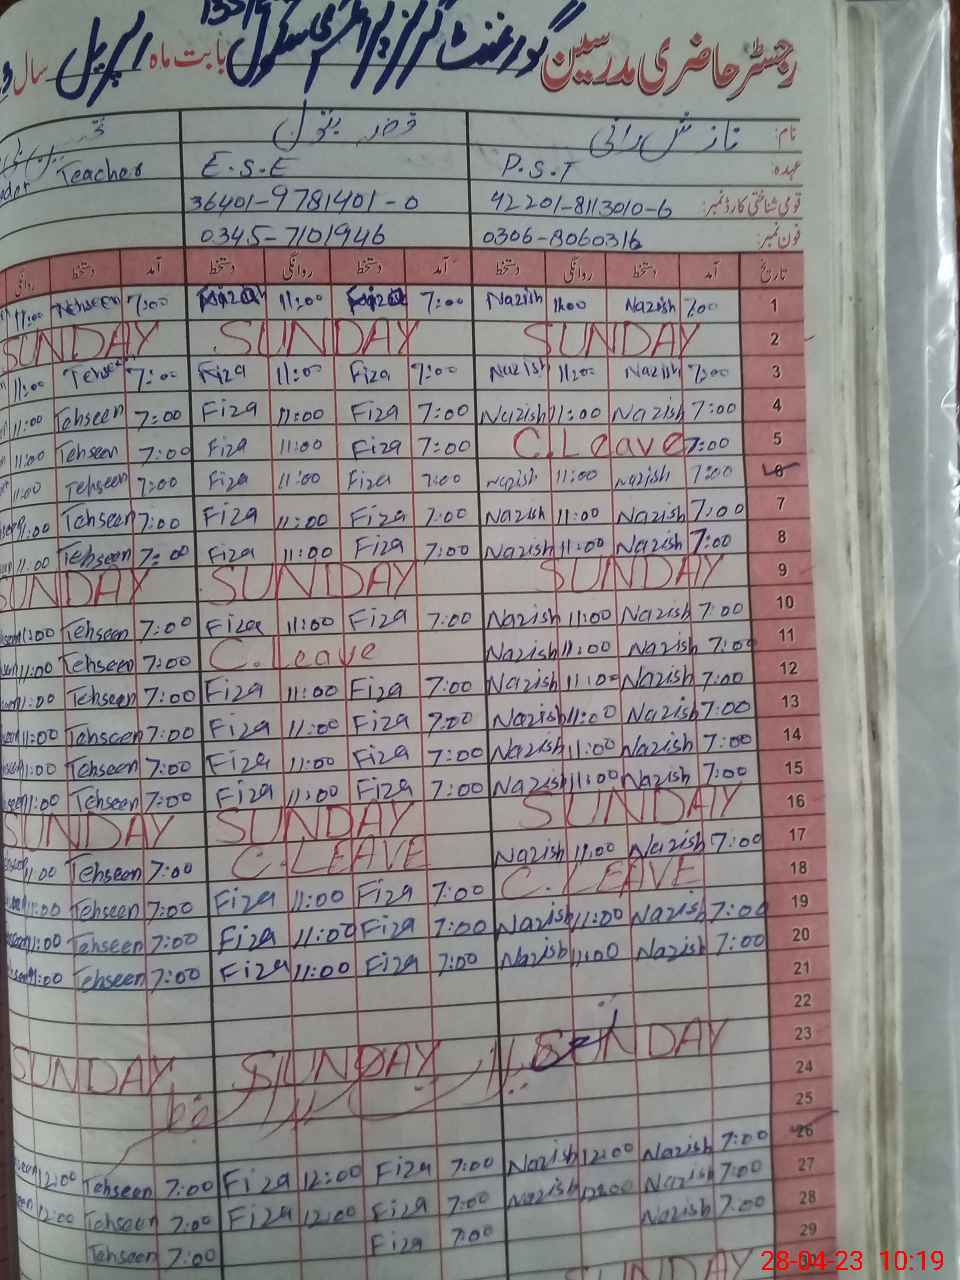 رجسٹر حاضری مدرسین گورنمنٹ گرلز پرائمری سکول بابت ماہ اپریل سال
نام: نازش رانی فضہ بتول
عہدہ: P.S.T E.S.E Teacher
قومی شناختی کارڈ نمبر: 42201-8113010-6 36401-9781401-0
فون نمبر: 0306-8060316 0345-7101946
تاریخ آمد دستخط روانگی دستخط آمد دستخط روانگی دستخط آمد دستخط روانگی
1 7:00 Nazish 11:00 Nazish 7:00 Fiza 11:00 Fiza 7:00 Tehseen 11:00
2 SUNDAY SUNDAY SUNDAY
3 7:00 Nazish 11:00 Nazish 7:00 Fiza 11:00 Fiza 7:00 Tehseen 11:00
4 7:00 Nazish 11:00 Nazish 7:00 Fiza 11:00 Fiza 7:00 Tehseen 11:00
5 7:00 C.Leave 7:00 Fiza 11:00 Fiza 7:00 Tehseen 11:00
6 7:00 Nazish 11:00 Nazish 7:00 Fiza 11:00 Fiza 7:00 Tehseen 11:00
7 7:00 Nazish 11:00 Nazish 7:00 Fiza 11:00 Fiza 7:00 Tehseen 11:00
8 7:00 Nazish 11:00 Nazish 7:00 Fiza 11:00 Fiza 7:00 Tehseen 11:00
9 SUNDAY SUNDAY SUNDAY
10 7:00 Nazish 11:00 Nazish 7:00 Fiza 11:00 Fiza 7:00 Tehseen 11:00
11 7:00 Nazish 11:00 Nazish C.Leave 7:00 Tehseen 11:00
12 7:00 Nazish 11:00 Nazish 7:00 Fiza 11:00 Fiza 7:00 Tehseen 11:00
13 7:00 Nazish 11:00 Nazish 7:00 Fiza 11:00 Fiza 7:00 Tehseen 11:00
14 7:00 Nazish 11:00 Nazish 7:00 Fiza 11:00 Fiza 7:00 Tehseen 11:00
15 7:00 Nazish 11:00 Nazish 7:00 Fiza 11:00 Fiza 7:00 Tehseen 11:00
16 SUNDAY SUNDAY SUNDAY
17 7:00 Nazish 11:00 Nazish C.LEAVE 7:00 Tehseen 11:00
18 C.LEAVE 7:00 Fiza 11:00 Fiza 7:00 Tehseen 11:00
19 7:00 Nazish 11:00 Nazish 7:00 Fiza 11:00 Fiza 7:00 Tehseen 11:00
20 7:00 Nazish 11:00 Nazish 7:00 Fiza 11:00 Fiza 7:00 Tehseen 11:00
21
22
23 SUNDAY SUNDAY SUNDAY
24
25
26 7:00 Nazish 12:00 Nazish 7:00 Fiza 12:00 Fiza 7:00 Tehseen 12:00
27 7:00 Nazish 12:00 Nazish 7:00 Fiza 12:00 Fiza 7:00 Tehseen 12:00
28 7:00 Nazish 7:00 Fiza 7:00 Tehseen
29
30 SUNDAY
28-04-23 10:19